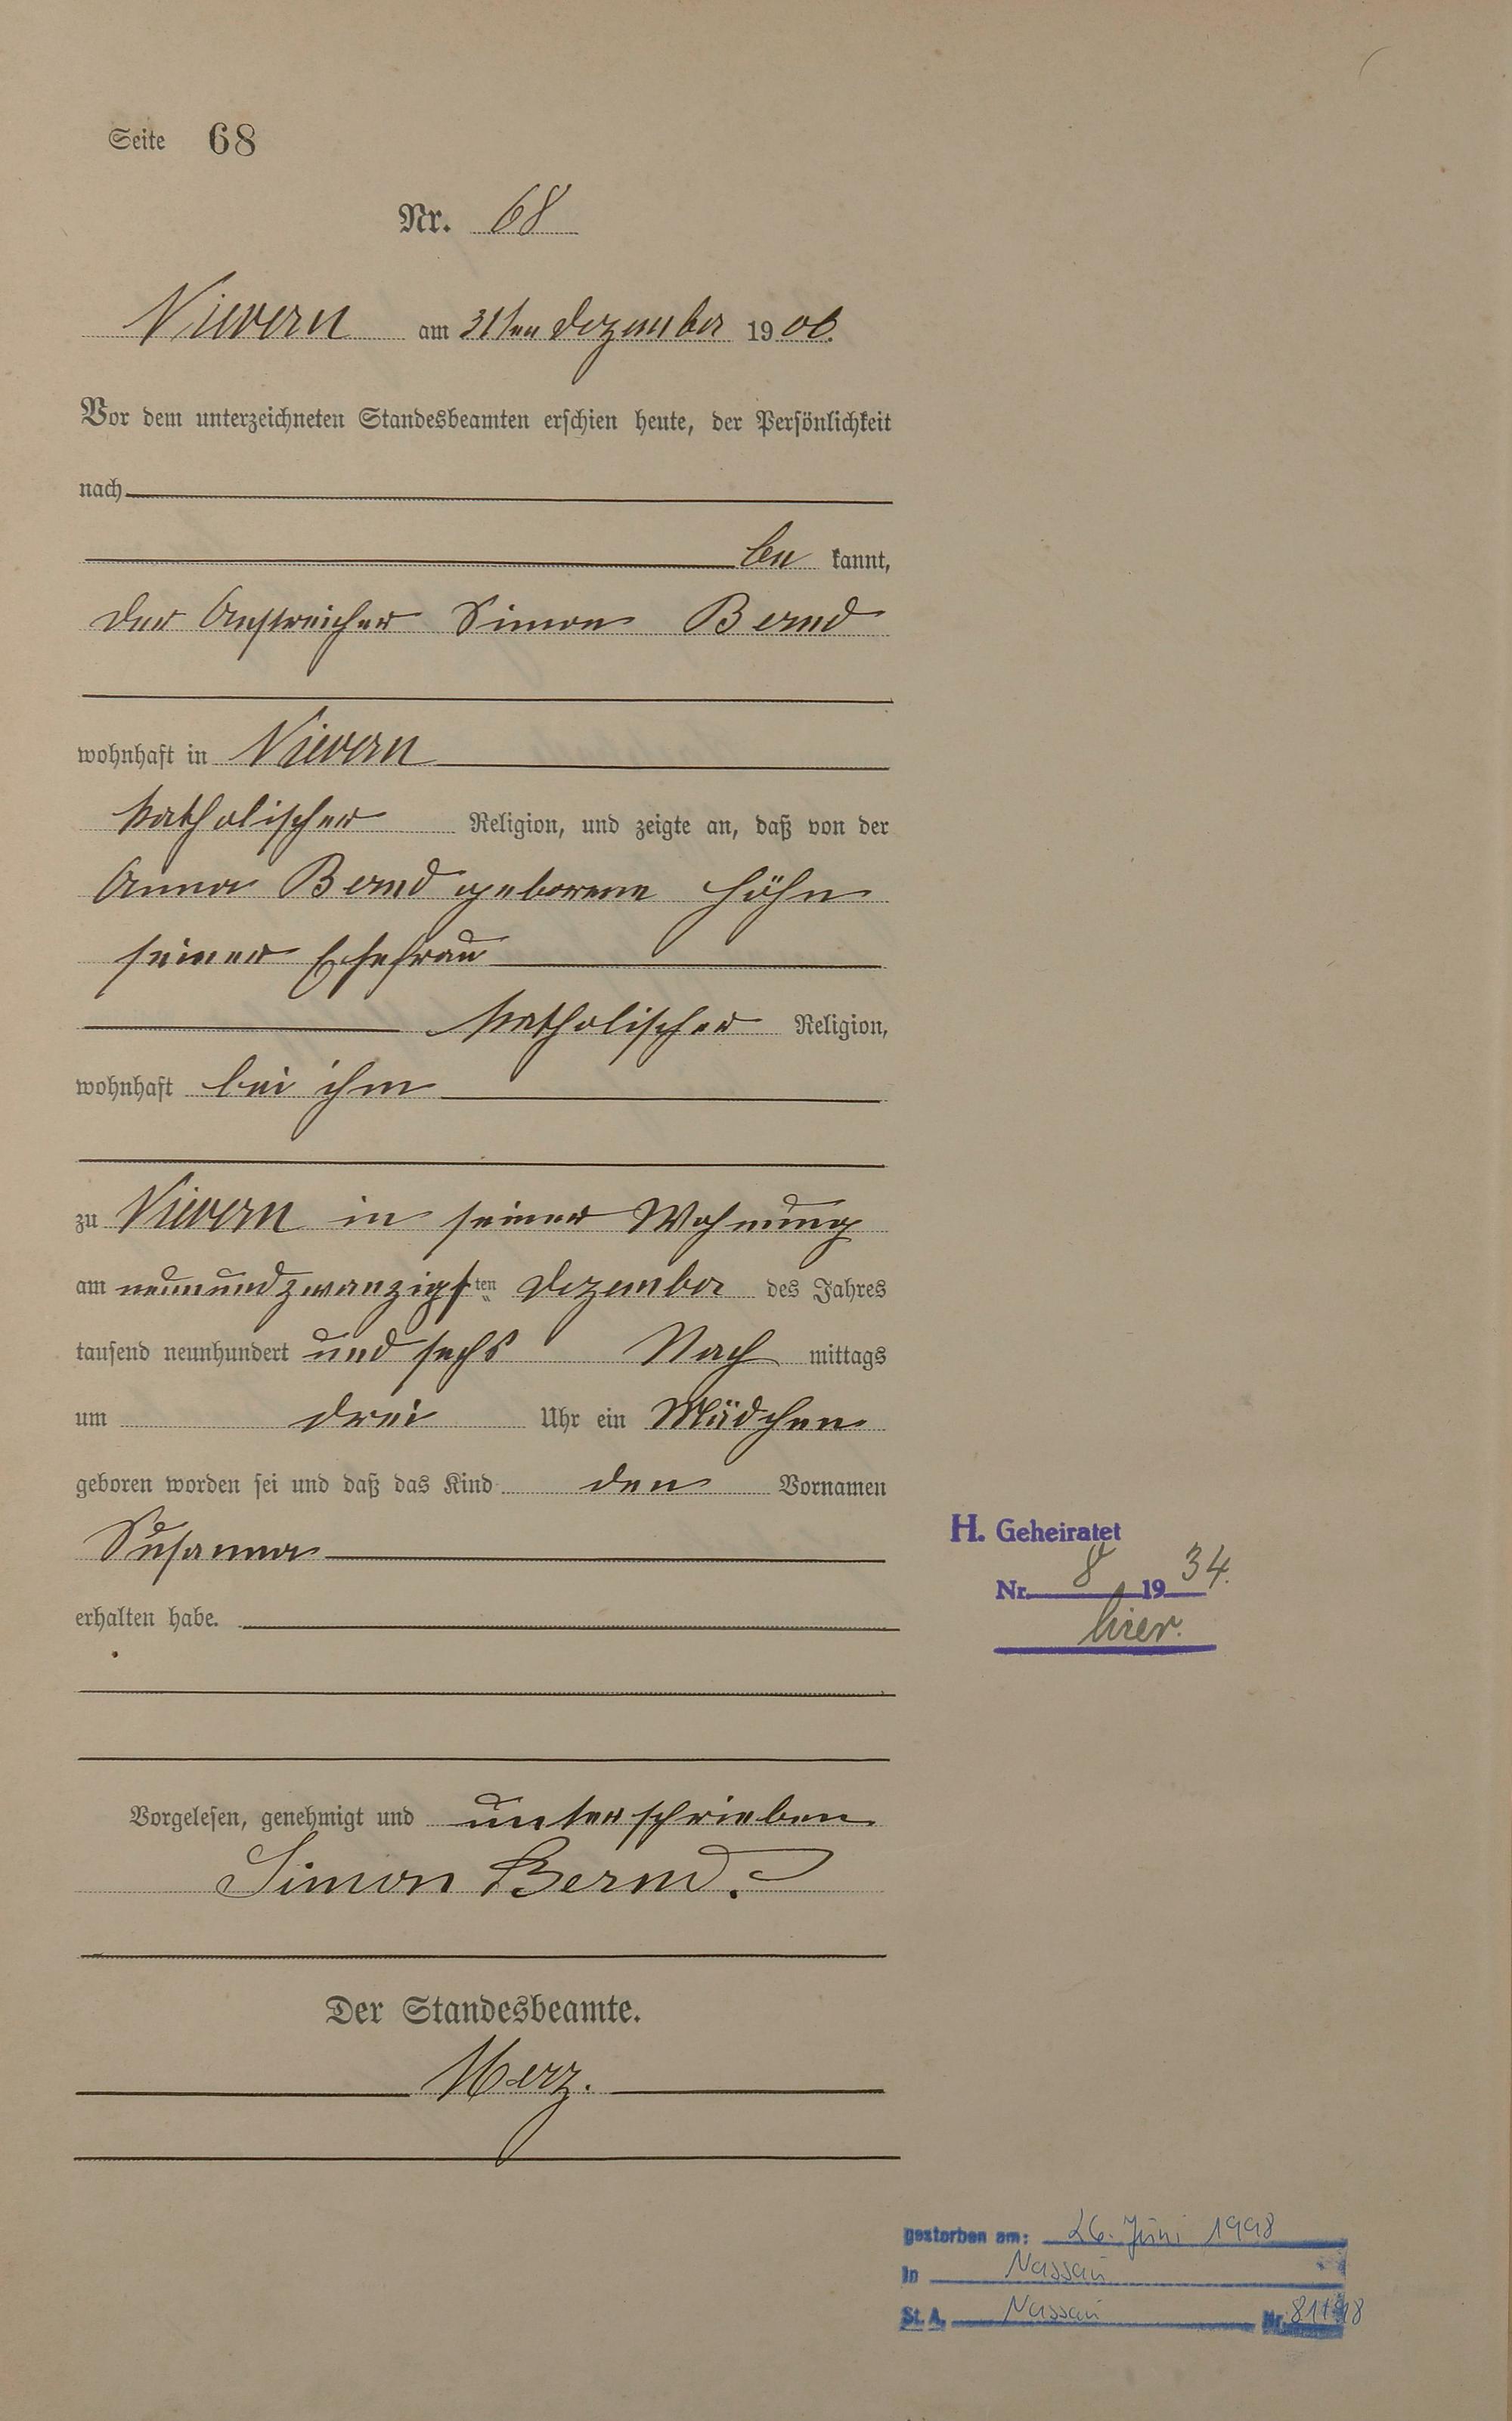 Seite 68
Nr. 68
Nievern am 31ten Dezember 1906.
Vor dem unterzeichneten Standesbeamten erschien heute, der Persönlichkeit
nach
be kannt,
der Anstreicher Simon Bernd
wohnhaft in Nievern
katholischer Religion, und zeigte an, daß von der
Anna Bernd geborene Höhn
seiner Ehefrau
katholischer Religion,
wohnhaft bei ihm
zu Nievern in seiner Wohnung
am neunundzwanzigsten Dezember des Jahres
tausend neunhundert und sechs Nach mittags
um drei Uhr ein Mädchen
geboren worden sei und daß das Kind den Vornamen
Susanna
erhalten habe.
H. Geheiratet
Nr. 8 1934.
hier.
Vorgelesen, genehmigt und unterschrieben
Simon Bernd.
Der Standesbeamte.
Merz.
gestorben am: 26. Juni 1998
in Nassau
St. A. Nassau Nr.